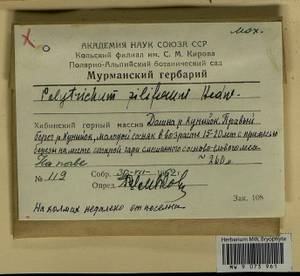 мох.
АКАДЕМИЯ НАУК СОЮЗА ССР
Кольский филиал им. С. М. Кирова
Полярно-Альпийский ботанический сад
Мурманский гербарий
Polytrichum piliferum Hedw.
Хибинский горный массив Долина р. Кунийок. Правый
берег р. Кунийок, молодой сосняк в возрасте 15-20 лет с примесью
березы на месте старой гари смешанного сосново-елового леса
На почве ~ 260 м
№ 119 30 1962
Опред.
На холмах недалеко от поселка Зак. 108
Herbarium MW, Bryophyte
MW 9 073 961